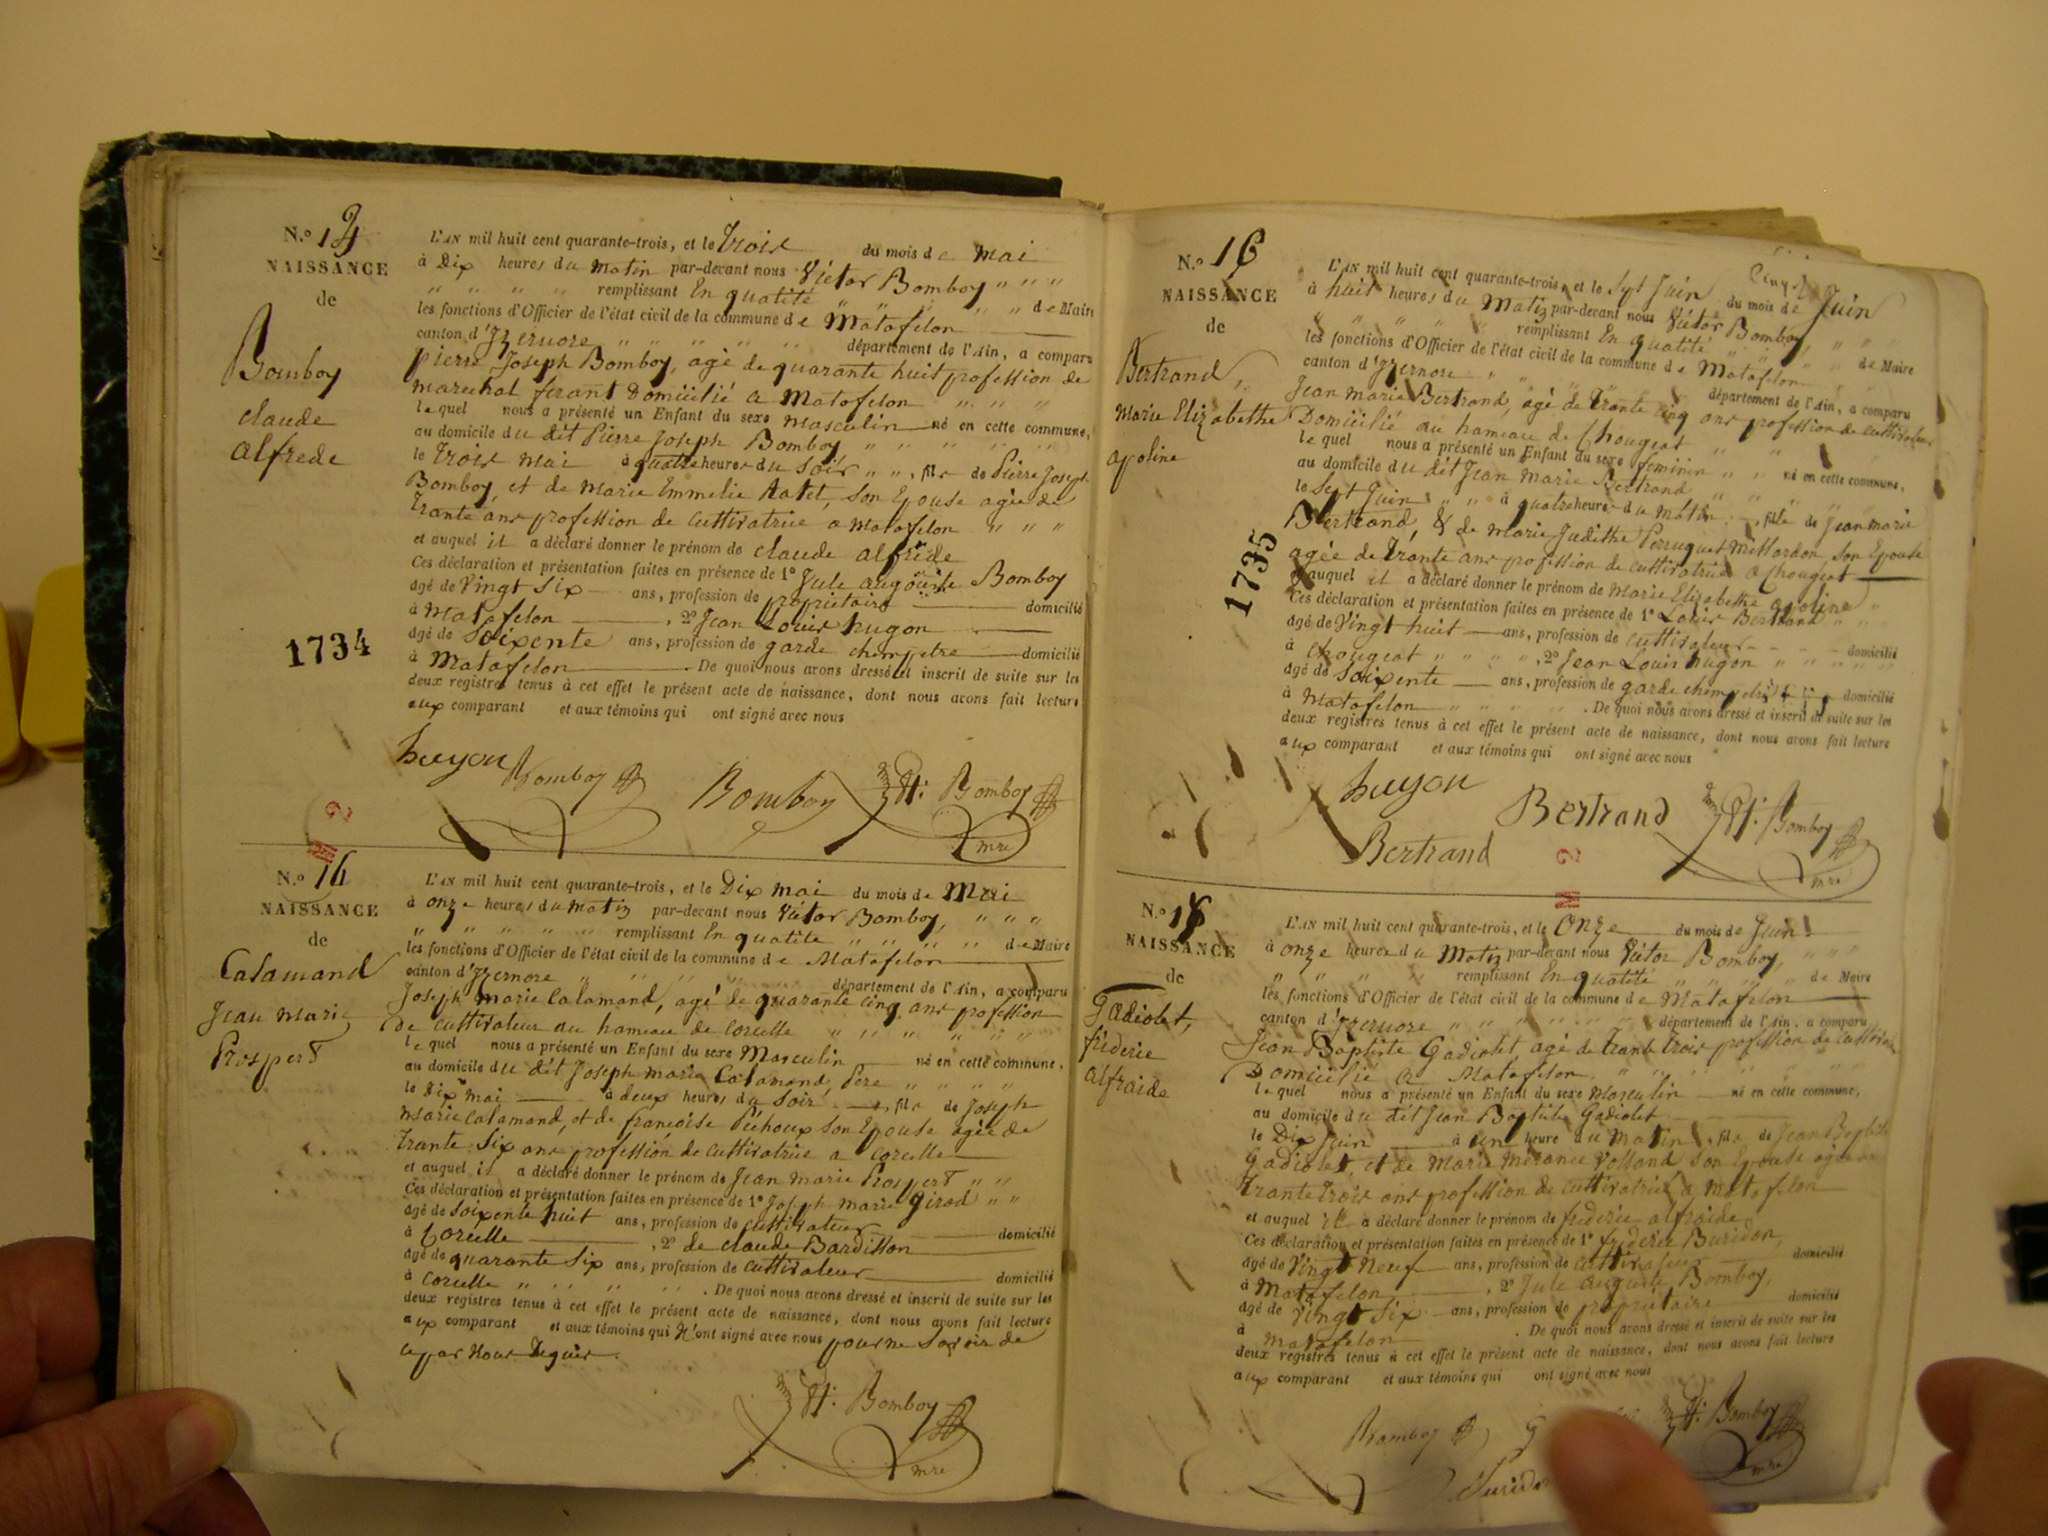 N.º 14
NAISSANCE
de
Bomboy
claude
alfrede
1734
L'AN mil huit cent quarante-trois, et le Trois du mois de mai
à Dix heures du matin par-devant nous Victor Bomboy " " "
" " " " remplissant En qualité " " " de Maire
les fonctions d'Officier de l'état civil de la commune de Matafelon
canton d'Izernore " " " département de l'Ain, a comparu
pierre Joseph Bomboy, agé de quarante huit profession de
marechal ferant Domicilié a Matafelon " " "
lequel nous a présenté un Enfant du sexe masculin né en cette commune,
au domicile du dit Pierre Joseph Bomboy " " " "
le Trois mai à quatre heures du Soir " " , fils de Pierre Joseph
Bomboy, et de Marie Emmelie son Epouse agée de
Trante ans profession de cultivatrice a Matafelon " " "
et auquel il a déclaré donner le prénom de claude alfrede
Ces déclaration et présentation faites en présence de 1º Jule auguste Bomboy
agé de Vingt Six ans, profession de propriétaire domicilié
à Matafelon , 2º Jean Louis hugon
agé de Soixente ans, profession de garde chempetre domicilié
à Matafelon . De quoi nous avons dressé et inscrit de suite sur les
deux registres tenus à cet effet le présent acte de naissance, dont nous avons fait lecture
aux comparant et aux témoins qui ont signé avec nous
hugon Bomboy Bomboy Vt. Bomboy
mre
N.º
NAISSANCE
de
Calamand
Jean Marie
Prospert
L'AN mil huit cent quarante-trois, et le Dix mai du mois de Mai
à onze heures du matin par-devant nous Victor Bomboy, " " "
" " " " " remplissant En qualité " " " " de Maire
les fonctions d'Officier de l'état civil de la commune de Matafelon
canton d'Izernore " " " département de l'Ain, a comparu
Joseph marie Calamand, agé de quarante cinq ans profession
de cultivateur au hameau de Corcelle " " " " "
lequel nous a présenté un Enfant du sexe Masculin né en cette commune,
au domicile du dit Joseph marie Calamand, Pere " " " "
le Dix mai à deux heures du Soir , fils de Joseph
Marie Calamand, et de françoise Péchoux son Epouse agée de
Trante Six ans profession de cultivatrice a Corcelle
et auquel il a déclaré donner le prénom de Jean marie Prospert " "
Ces déclaration et présentation faites en présence de 1º Joseph marie Girod " "
agé de Soixente huit ans, profession de cultivateur domicilié
à Corcelle , 2º de claude Bardillon
agé de quarante Six ans, profession de cultivateur domicilié
à Corcelle " " " " " . De quoi nous avons dressé et inscrit de suite sur les
deux registres tenus à cet effet le présent acte de naissance, dont nous avons fait lecture
aux comparant et aux témoins qui N'ont signé avec nous pour ne Savoir de
ce par Nous
Vt. Bomboy
mre
N.º 16
NAISSANCE
de
Bertrand,
Marie Elizabethe
apoline
1735
L'AN mil huit cent quarante-trois, et le Sept Juin du mois de Juin
à huit heures du Matin par-devant nous Victor Bomboy
" " " " remplissant En qualité " " " de Maire
les fonctions d'Officier de l'état civil de la commune de Matafelon
canton d'Izernore " " département de l'Ain, a comparu
Jean marie Bertrand, agé de Trante cinq ans profession de cultivateur
Domicilié au hameau de Chougeat " " "
lequel nous a présenté un Enfant du sexe feminin " " né en cette commune,
au domicile du dit Jean Marie Bertrand " " "
le Sept Juin " " à quatre heures du Matin , fille de Jean Marie
Bertrand, & de Marie Judithe Perruquet Millardon son Epouse
agée de Trante ans profession de cultivatrice a Chougeat
et auquel il a déclaré donner le prénom de Marie Elizabethe apoline
Ces déclaration et présentation faites en présence de 1º Louis Bertrand " "
agé de Vingt huit ans, profession de cultivateur domicilié
à Chougeat " " " " , 2º Jean Louis hugon " " " "
agé de Soixente ans, profession de garde chempetre domicilié
à Matafelon " " " . De quoi nous avons dressé et inscrit de suite sur les
deux registres tenus à cet effet le présent acte de naissance, dont nous avons fait lecture
aux comparant et aux témoins qui ont signé avec nous
hugon Bertrand Vt. Bomboy
Bertrand mre
N.º
NAISSANCE
de
Gadiolet,
fréderic
alfraide
L'AN mil huit cent quarante-trois, et le Onze du mois de Juin
à onze heures du Matin par-devant nous Victor Bomboy, " " "
" " " remplissant En qualité " " " " de Maire
les fonctions d'Officier de l'état civil de la commune de Matafelon
canton d'Izernore " " " " " département de l'Ain, a comparu
Jean Baptiste Gadiolet agé de trante trois profession de cultivateur
Domicilié a Matafelon " " " " "
lequel nous a présenté un Enfant du sexe Masculin né en cette commune,
au domicile du dit Jean Baptiste Gadiolet
le Dix Juin à un heure du matin , fils de Jean Baptiste
Gadiolet, et de Marie Mérance Volland son Epouse agée de
Trante trois ans profession de cultivatrice a Matafelon
et auquel il a déclaré donner le prénom de fréderic alfraide
Ces déclaration et présentation faites en présence de 1º fréderic Buridon,
agé de Vingt Neuf ans, profession de cultivateur domicilié
à Matafelon , 2º Jule Auguste Bomboy,
agé de Vingt Six ans, profession de propriétaire domicilié
à Matafelon . De quoi nous avons dressé et inscrit de suite sur les
deux registres tenus à cet effet le présent acte de naissance, dont nous avons fait lecture
aux comparant et aux témoins qui ont signé avec nous
Bomboy Vt. Bomboy
mre